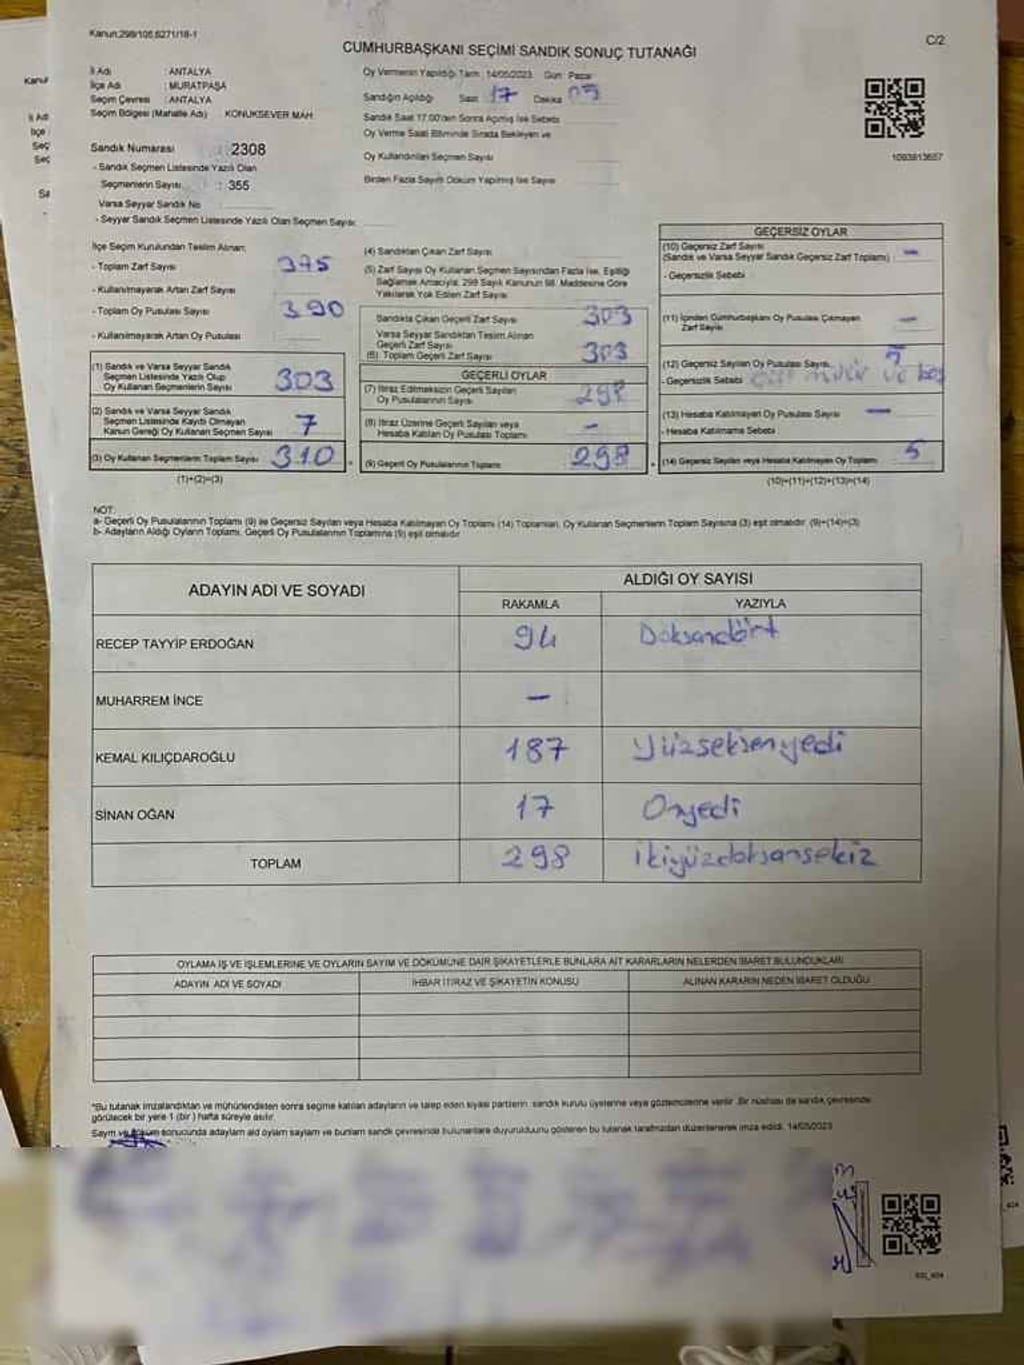 Kanun:298/105,6271/18-1
C/2
CUMHURBAŞKANI SEÇİMİ SANDIK SONUÇ TUTANAĞI
İl Adı : ANTALYA
İlçe Adı : MURATPAŞA
Seçim Çevresi : ANTALYA
Seçim Bölgesi (Mahalle Adı) KONUKSEVER MAH.
Sandık Numarası 2308
- Sandık Seçmen Listesinde Yazılı Olan
Seçmenlerin Sayısı : 355
Varsa Seyyar Sandık No
- Seyyar Sandık Seçmen Listesinde Yazılı Olan Seçmen Sayısı:
Oy Vermenin Yapıldığı Tarih: 14/05/2023 Gün: Pazar
Sandığın Açıldığı Saat 17 Dakika
Sandık Saat 17.00'den Sonra Açılmış İse Sebebi
Oy Verme Saati Bitiminde Sırada Bekleyen ve
Oy Kullandırılan Seçmen Sayısı
Birden Fazla Sayım Döküm Yapılmış İse Sayısı
1093813657
İlçe Seçim Kurulundan Teslim Alınan:
- Toplam Zarf Sayısı 375
- Kullanılmayarak Artan Zarf Sayısı
- Toplam Oy Pusulası Sayısı 390
- Kullanılmayarak Artan Oy Pusulası
(1) Sandık ve Varsa Seyyar Sandık
Seçmen Listesinde Yazılı Olup
Oy Kullanan Seçmenlerin Sayısı 303
(2) Sandık ve Varsa Seyyar Sandık
Seçmen Listesinde Kayıtlı Olmayan
Kanun Gereği Oy Kullanan Seçmen Sayısı 7
(3) Oy Kullanan Seçmenlerin Toplam Sayısı 310
(1)+(2)=(3)
(4) Sandıktan Çıkan Zarf Sayısı
(5) Zarf Sayısı Oy Kullanan Seçmen Sayısından Fazla İse, Eşitliği
Sağlamak Amacıyla; 298 Sayılı Kanunun 98. Maddesine Göre
Yakılarak Yok Edilen Zarf Sayısı
Sandıkta Çıkan Geçerli Zarf Sayısı 303
Varsa Seyyar Sandıktan Teslim Alınan
Geçerli Zarf Sayısı
(6) Toplam Geçerli Zarf Sayısı 303
GEÇERLİ OYLAR
(7) İtiraz Edilmeksizin Geçerli Sayılan
Oy Pusulalarının Sayısı 298
(8) İtiraz Üzerine Geçerli Sayılan veya
Hesaba Katılan Oy Pusulası Toplamı -
(9) Geçerli Oy Pusulalarının Toplamı 298
GEÇERSİZ OYLAR
(10) Geçersiz Zarf Sayısı
(Sandık ve Varsa Seyyar Sandık Geçersiz Zarf Toplamı) -
- Geçersizlik Sebebi
(11) İçinden Cumhurbaşkanı Oy Pusulası Çıkmayan
Zarf Sayısı -
(12) Geçersiz Sayılan Oy Pusulası Sayısı 5
- Geçersizlik Sebebi
(13) Hesaba Katılmayan Oy Pusulası Sayısı -
- Hesaba Katılmama Sebebi
(14) Geçersiz Sayılan veya Hesaba Katılmayan Oy Toplamı 5
(10)+(11)+(12)+(13)=(14)
NOT:
a- Geçerli Oy Pusulalarının Toplamı (9) ile Geçersiz Sayılan veya Hesaba Katılmayan Oy Toplamı (14) Toplamları, Oy Kullanan Seçmenlerin Toplam Sayısına (3) eşit olmalıdır. (9)+(14)=(3)
b- Adayların Aldığı Oyların Toplamı, Geçerli Oy Pusulalarının Toplamına (9) eşit olmalıdır
ADAYIN ADI VE SOYADI ALDIĞI OY SAYISI
RAKAMLA YAZIYLA
RECEP TAYYİP ERDOĞAN 94 Doksandört
MUHARREM İNCE -
KEMAL KILIÇDAROĞLU 187 Yüzseksenyedi
SİNAN OĞAN 17 Onyedi
TOPLAM 298 ikiyüzdoksansekiz
OYLAMA İŞ VE İŞLEMLERİNE VE OYLARIN SAYIM VE DÖKÜMÜNE DAİR ŞİKAYETLERLE BUNLARA AİT KARARLARIN NELERDEN İBARET BULUNDUKLARI
ADAYIN ADI VE SOYADI İHBAR İTİRAZ VE ŞİKAYETİN KONUSU ALINAN KARARIN NEDEN İBARET OLDUĞU
*Bu tutanak imzalandıktan ve mühürlendikten sonra seçime katılan adayların ve talep eden siyasi partilerin sandık kurulu üyelerine veya gözlemcilerine verilir. Bir nüshası da sandık çevresinde
görülecek bir yere 1 (bir) hafta süreyle asılır.
Sayım ve döküm sonucunda adayların aldığı oyların sayıları ve bunların sandık çevresinde bulunanlara duyurulduğunu gösteren bu tutanak tarafımızdan düzenlenerek imza edildi. 14/05/2023